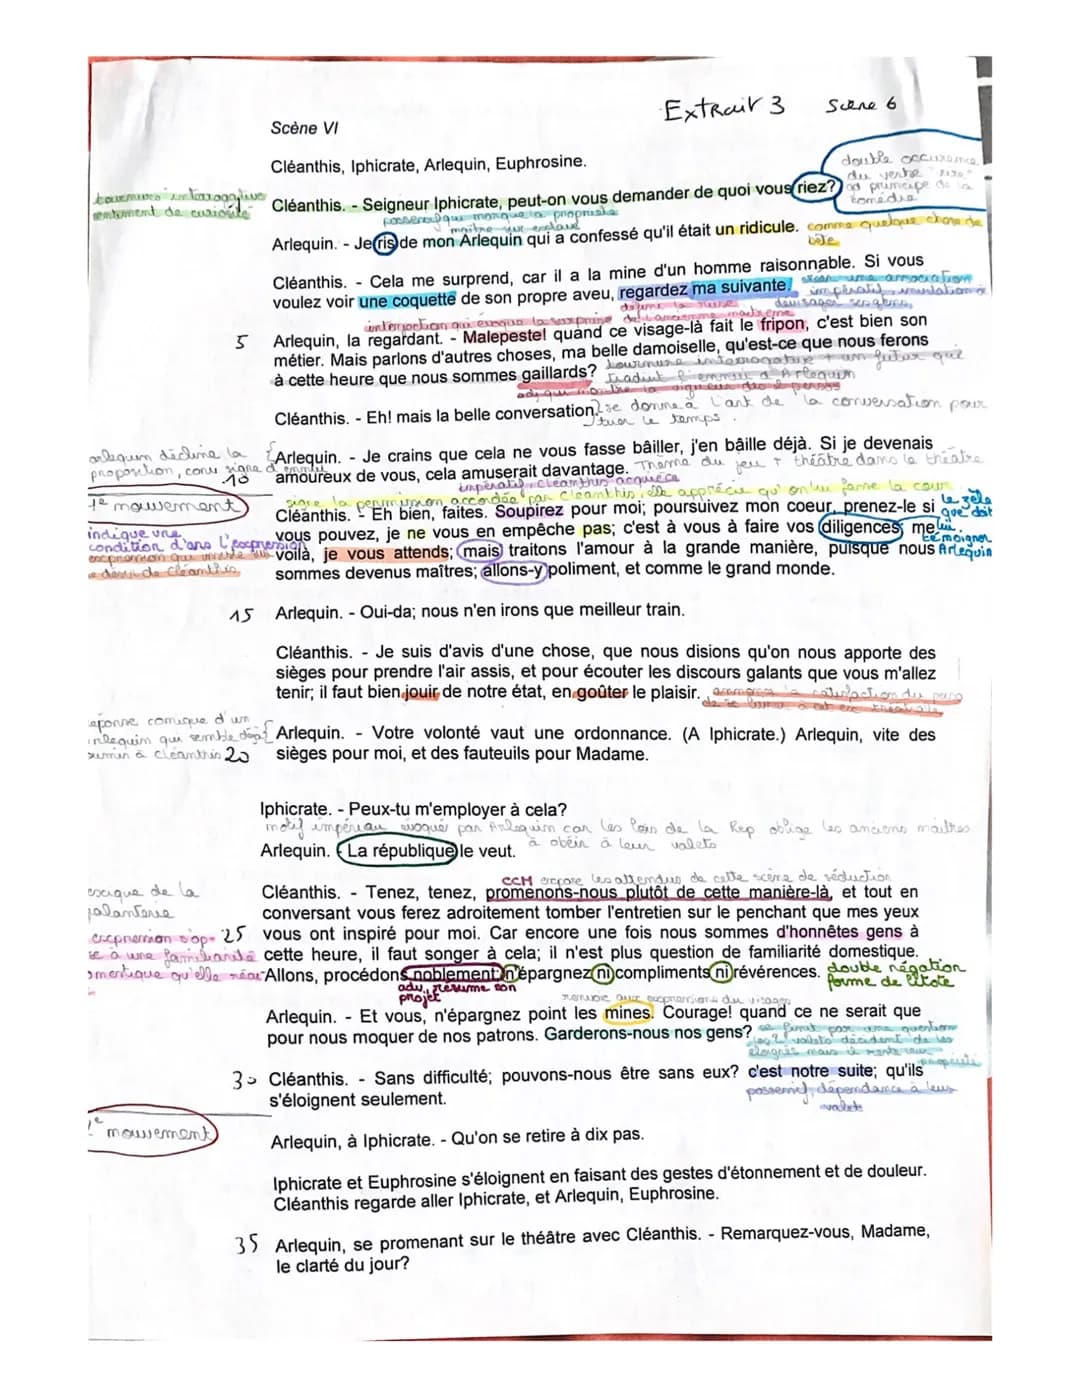 Extrait 3 Scene 6
Scène VI
Cléanthis, Iphicrate, Arlequin, Euphrosine.
double occurence
du verbe "rire"
principe de la
comédie
tournure interrogative
sentiment de curiosité
Cléanthis. - Seigneur Iphicrate, peut-on vous demander de quoi vous riez?
possessif qui marque la propriété
maître sur esclave
Arlequin. - Je ris de mon Arlequin qui a confessé qu'il était un ridicule.
comme quelque chose de
bête
Cléanthis. - Cela me surprend, car il a la mine d'un homme raisonnable. Si vous
voulez voir une coquette de son propre aveu, regardez ma suivante.
une association
impératif, invitation à
dévisager ses gens
définit la ruse
de l'ancienne maîtresse
interjection qui évoque la surprise
5 Arlequin, la regardant. - Malepeste! quand ce visage-là fait le fripon, c'est bien son
métier. Mais parlons d'autres choses, ma belle damoiselle, qu'est-ce que nous ferons
à cette heure que nous sommes gaillards?
tournure interrogative + un futur qui
traduit l'ennui d'Arlequin
adj qui montre la vigueur des 2 persos
Cléanthis. - Eh! mais la belle conversation.
se donne à l'art de la conversation pour
tuer le temps.
arlequin décline la
proposition, comu signe d'ennui
Arlequin. - Je crains que cela ne vous fasse bâiller, j'en bâille déjà. Si je devenais
10 amoureux de vous, cela amuserait davantage.
Thème du jeu + théâtre dans le théâtre
impératif, cléanthis acquiesce
signe la permission accordée par Cléanthis, elle apprécie qu'on lui fasse la cour
1e mouvement
Cléanthis. - Eh bien, faites. Soupirez pour moi; poursuivez mon coeur, prenez-le si
le zèle
que doit
lui
témoigner
Arlequin
indique une
condition d'ans l'expression
vous pouvez, je ne vous en empêche pas; c'est à vous à faire vos diligences; me
voilà, je vous attends; mais traitons l'amour à la grande manière, puisque nous
expression qui
désir de Cléanthis
sommes devenus maîtres; allons-y poliment, et comme le grand monde.
15 Arlequin. - Oui-da; nous n'en irons que meilleur train.
Cléanthis. - Je suis d'avis d'une chose, que nous disions qu'on nous apporte des
sièges pour prendre l'air assis, et pour écouter les discours galants que vous m'allez
tenir; il faut bien jouir de notre état, en goûter le plaisir.
la satisfaction du perso
de se livrer à cet
réponse comique d'un
arlequin qui semble déjà
soumis à cléanthis
Arlequin. - Votre volonté vaut une ordonnance. (A Iphicrate.) Arlequin, vite des
20 sièges pour moi, et des fauteuils pour Madame.
Iphicrate. - Peux-tu m'employer à cela?
motif impérieux évoqué par Arlequin car les lois de la Rep oblige les anciens maîtres
à obéir à leur valets
Arlequin. - La république le veut.
CCM expose les attendus de cette scène de séduction
lexique de la
galanterie
Cléanthis. - Tenez, tenez, promenons-nous plutôt de cette manière-là, et tout en
conversant vous ferez adroitement tomber l'entretien sur le penchant que mes yeux
25 vous ont inspiré pour moi. Car encore une fois nous sommes d'honnêtes gens à
expression s'op-
se à une familiarité
domestique qu'elle
cette heure, il faut songer à cela; il n'est plus question de familiarité domestique.
Allons, procédons noblement; n'épargnez ni compliments ni révérences.
double négation
forme de litote
adv, résume son
projet
renvoie aux expressions du visage
Arlequin. - Et vous, n'épargnez point les mines. Courage! quand ce ne serait que
pour nous moquer de nos patrons. Garderons-nous nos gens?
se finit par une question
les 2 valets décident de les
éloigner mais
30 Cléanthis. - Sans difficulté; pouvons-nous être sans eux? c'est notre suite; qu'ils
s'éloignent seulement.
possessif, dépendance à leurs
valets
2e mouvement
Arlequin, à Iphicrate. - Qu'on se retire à dix pas.
Iphicrate et Euphrosine s'éloignent en faisant des gestes d'étonnement et de douleur.
Cléanthis regarde aller Iphicrate, et Arlequin, Euphrosine.
35 Arlequin, se promenant sur le théâtre avec Cléanthis. - Remarquez-vous, Madame,
le clarté du jour?